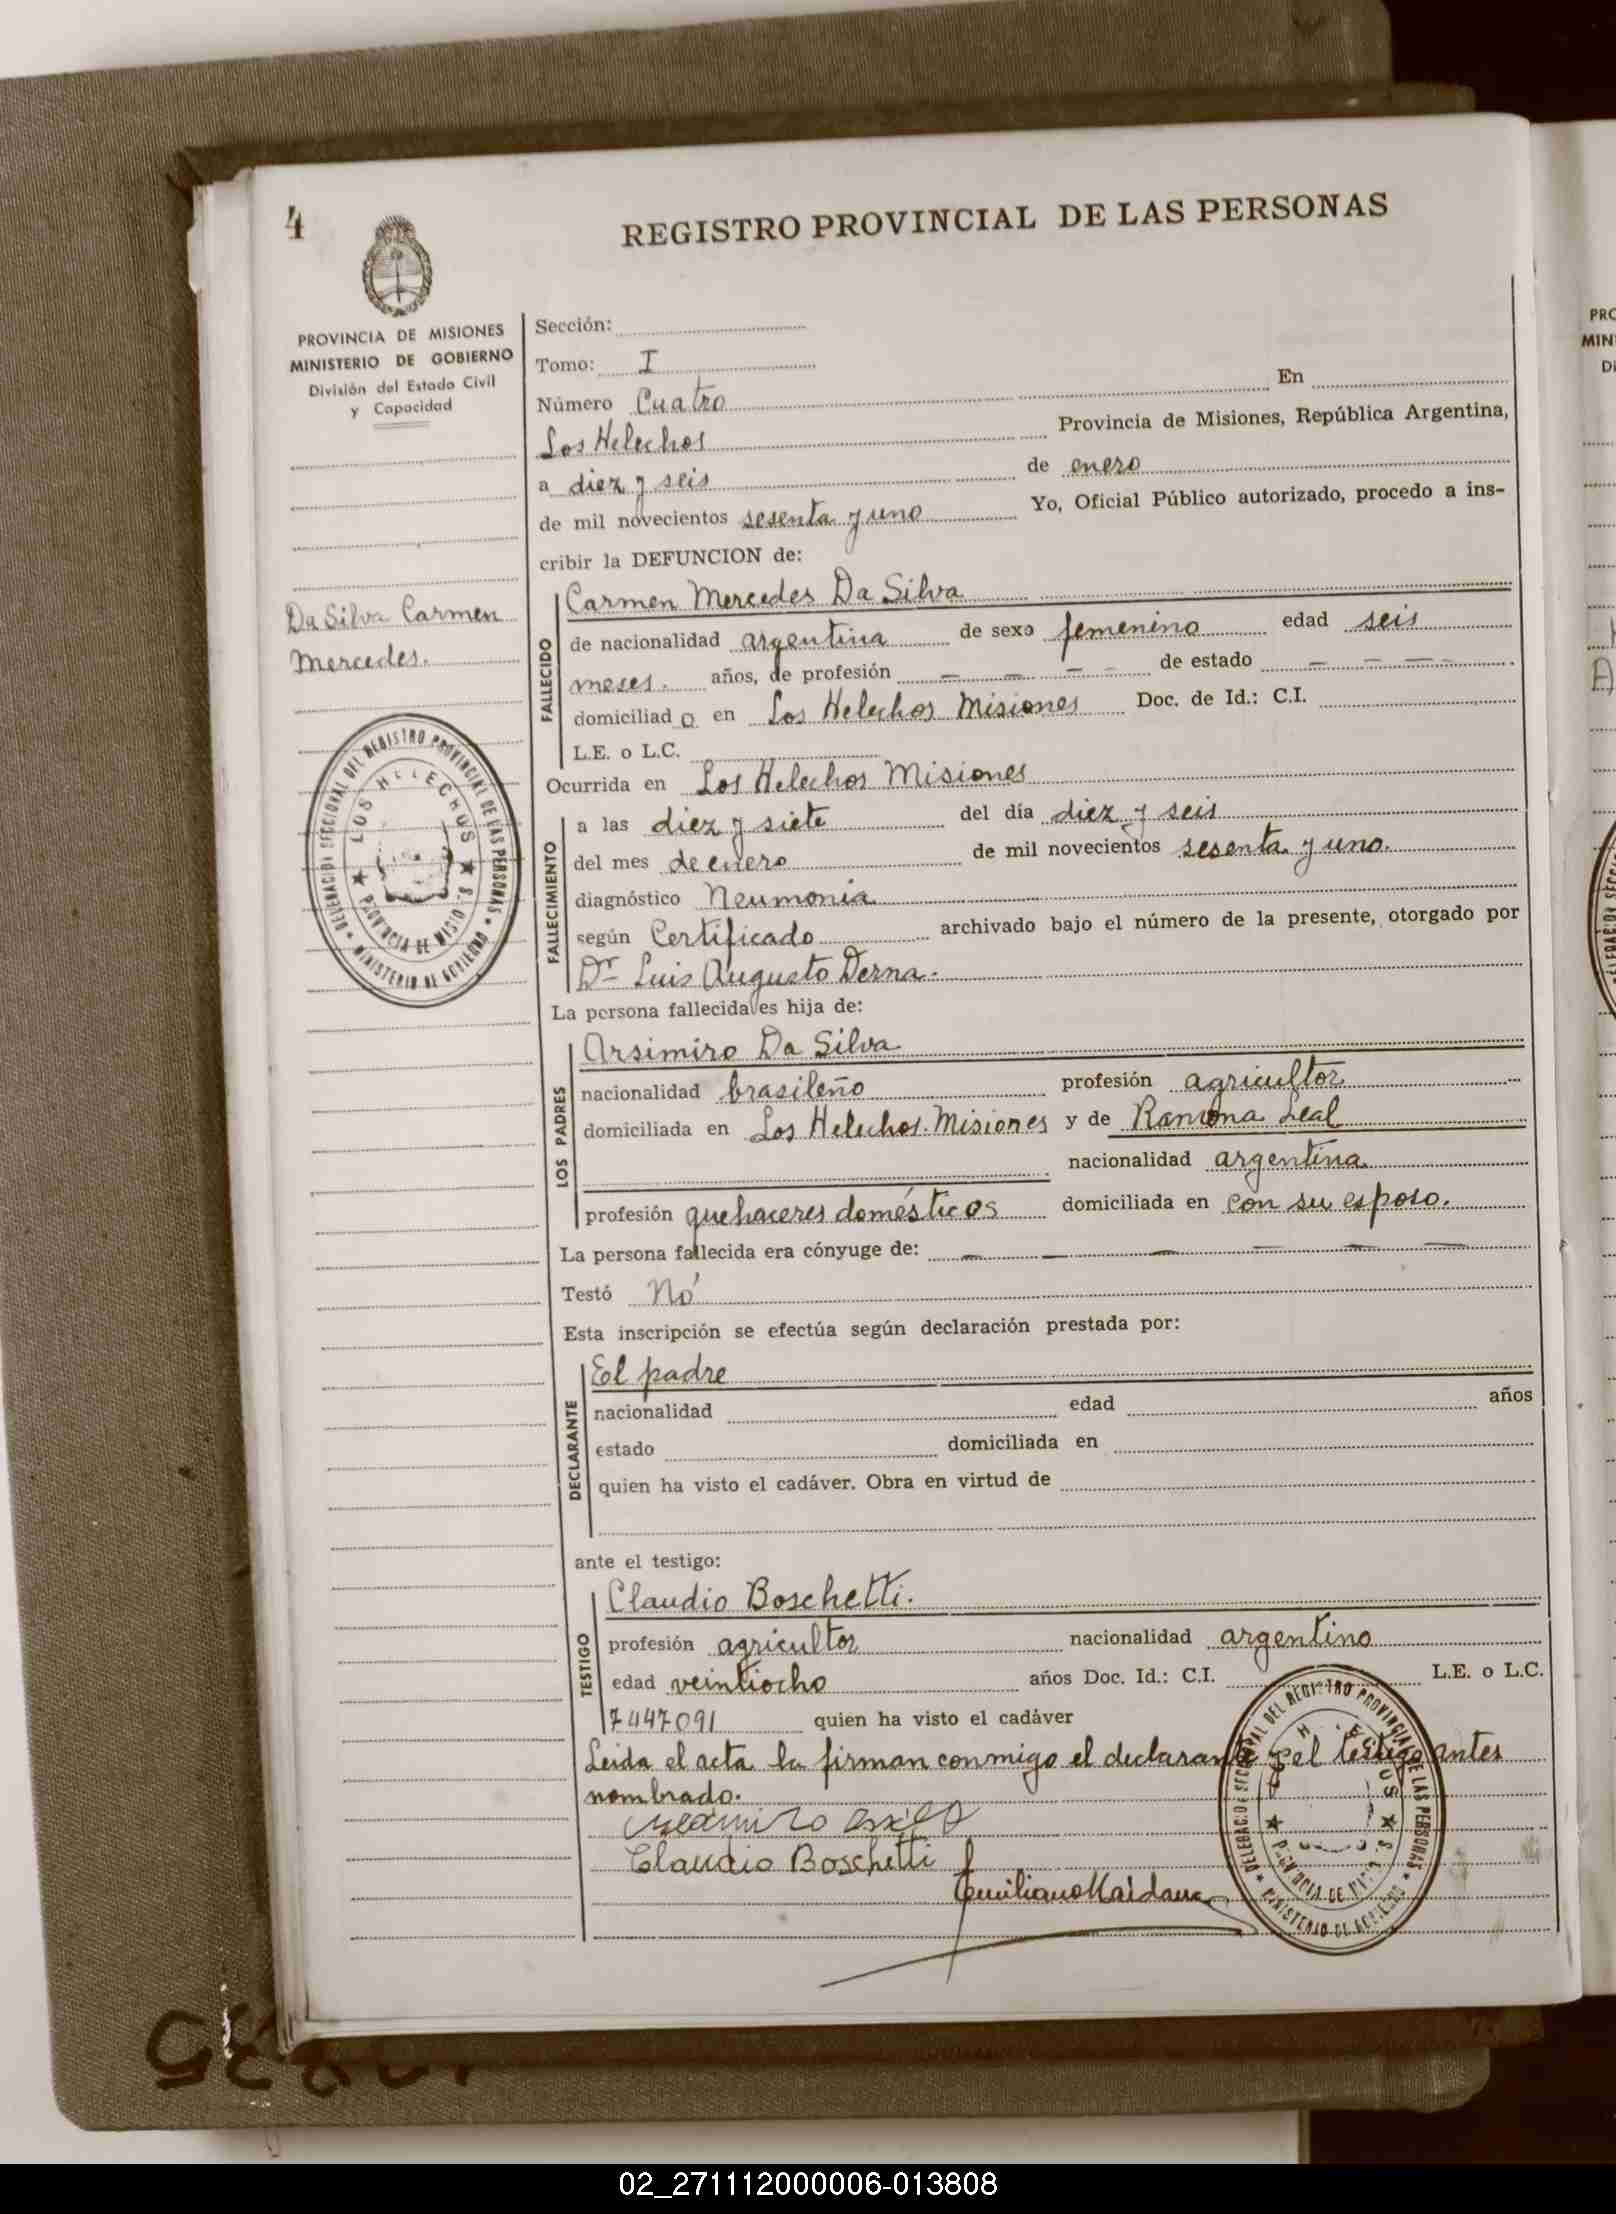 4
REGISTRO PROVINCIAL DE LAS PERSONAS
PROVINCIA DE MISIONES
MINISTERIO DE GOBIERNO
División del Estado Civil
y Capacidad
Da Silva Carmen
Mercedes.
DELEGACION SECCIONAL DEL REGISTRO PROVINCIAL DE LAS PERSONAS
LOS HELECHOS
PROVINCIA DE MISIONES
MINISTERIO DE GOBIERNO
Sección:
Tomo: I
Número Cuatro En
Los Helechos Provincia de Misiones, República Argentina,
a diez y seis de enero
de mil novecientos sesenta y uno Yo, Oficial Público autorizado, procedo a ins-
cribir la DEFUNCION de:
FALLECIDO
Carmen Mercedes Da Silva
de nacionalidad argentina de sexo femenino edad seis
meses. años, de profesión — — — — de estado — — — —
domiciliad o en Los Helechos Misiones Doc. de Id.: C.I.
L.E. o L.C.
Ocurrida en Los Helechos Misiones
FALLECIMIENTO
a las diez y siete del día diez y seis
del mes de enero de mil novecientos sesenta y uno.
diagnóstico Neumonia
según Certificado archivado bajo el número de la presente, otorgado por
Dr Luis Augusto Derna.
La persona fallecida es hija de:
LOS PADRES
Arsimiro Da Silva
nacionalidad brasileño profesión agricultor
domiciliada en Los Helechos. Misiones y de Ramona Leal
nacionalidad argentina
profesión quehaceres domésticos domiciliada en con su esposo.
La persona fallecida era cónyuge de: — — — — — —
Testó Nó
Esta inscripción se efectúa según declaración prestada por:
DECLARANTE
El padre
nacionalidad edad años
estado domiciliada en
quien ha visto el cadáver. Obra en virtud de
ante el testigo:
TESTIGO
Claudio Boschetti.
profesión agricultor nacionalidad argentino
edad veintiocho años Doc. Id.: C.I. L.E. o L.C.
7447091 quien ha visto el cadáver
Leida el acta la firman conmigo el declarante y el testigo antes
nombrado.
Claudio Boschetti
Emiliano Maidana
DELEGACION SECCIONAL DEL REGISTRO PROVINCIAL DE LAS PERSONAS
LOS HELECHOS
PROVINCIA DE MISIONES
MINISTERIO DE GOBIERNO
02_271112000006-013808